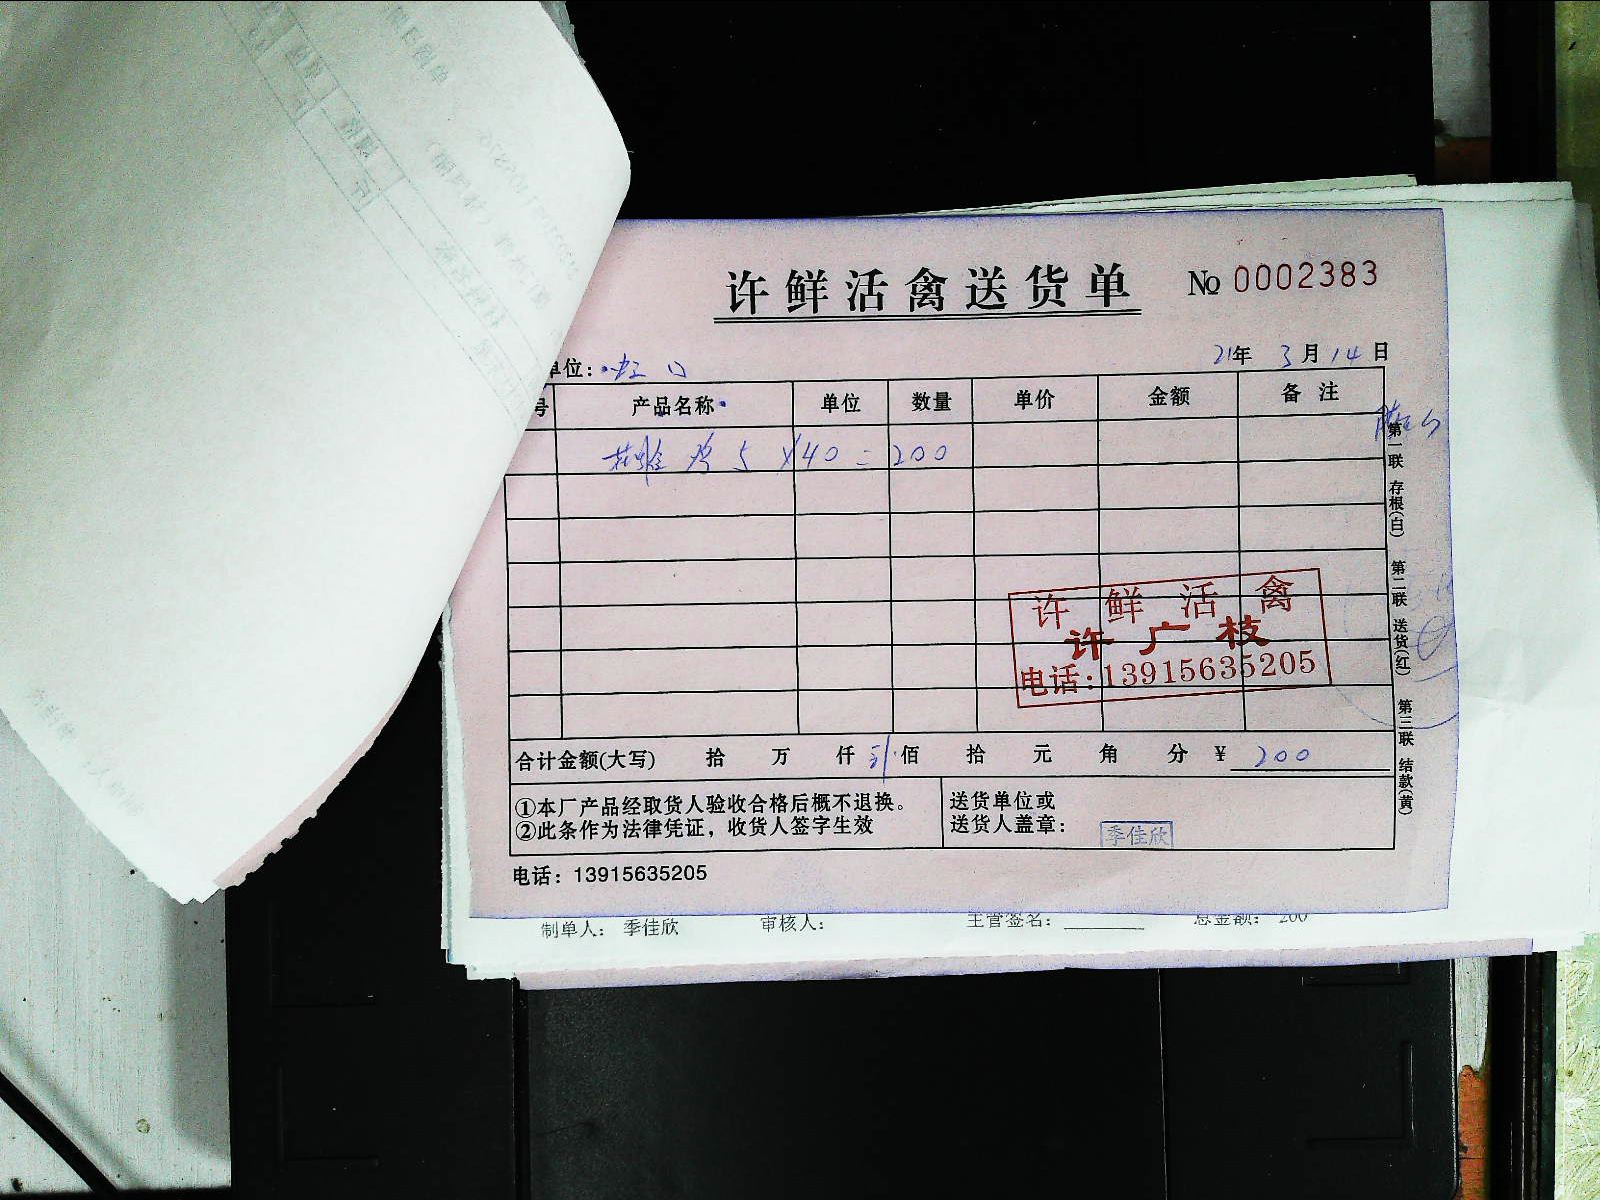 许鲜活禽送货单 No 0002383
单位：
21年 3月14日
号 产品名称 单位 数量 单价 金额 备注
鸡 5 ×40 = 200
第一联 存根(白) 第二联 送货(红) 第三联 结款(黄)
许鲜活禽
许广枝
电话：13915635205
合计金额(大写) 拾 万 仟 佰 拾 元 角 分 ¥ 200
①本厂产品经取货人验收合格后概不退换。
②此条作为法律凭证，收货人签字生效
送货单位或
送货人盖章： 季佳欣
电话：13915635205
制单人： 季佳欣 审核人： 主管签名： 总金额： 200